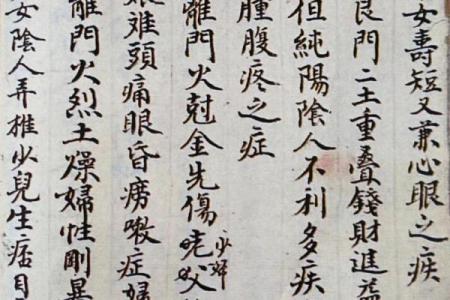 女壽短又兼心眼之疾
艮門二土重叠錢財進益
但純陽陰人不利多疾
腫腹疼之症
離門火尅金先傷少婦
難頭痛眼昏癆嗽症婦
離門火烈土燥婦性剛暴
女陰人弄權少兒生痞目